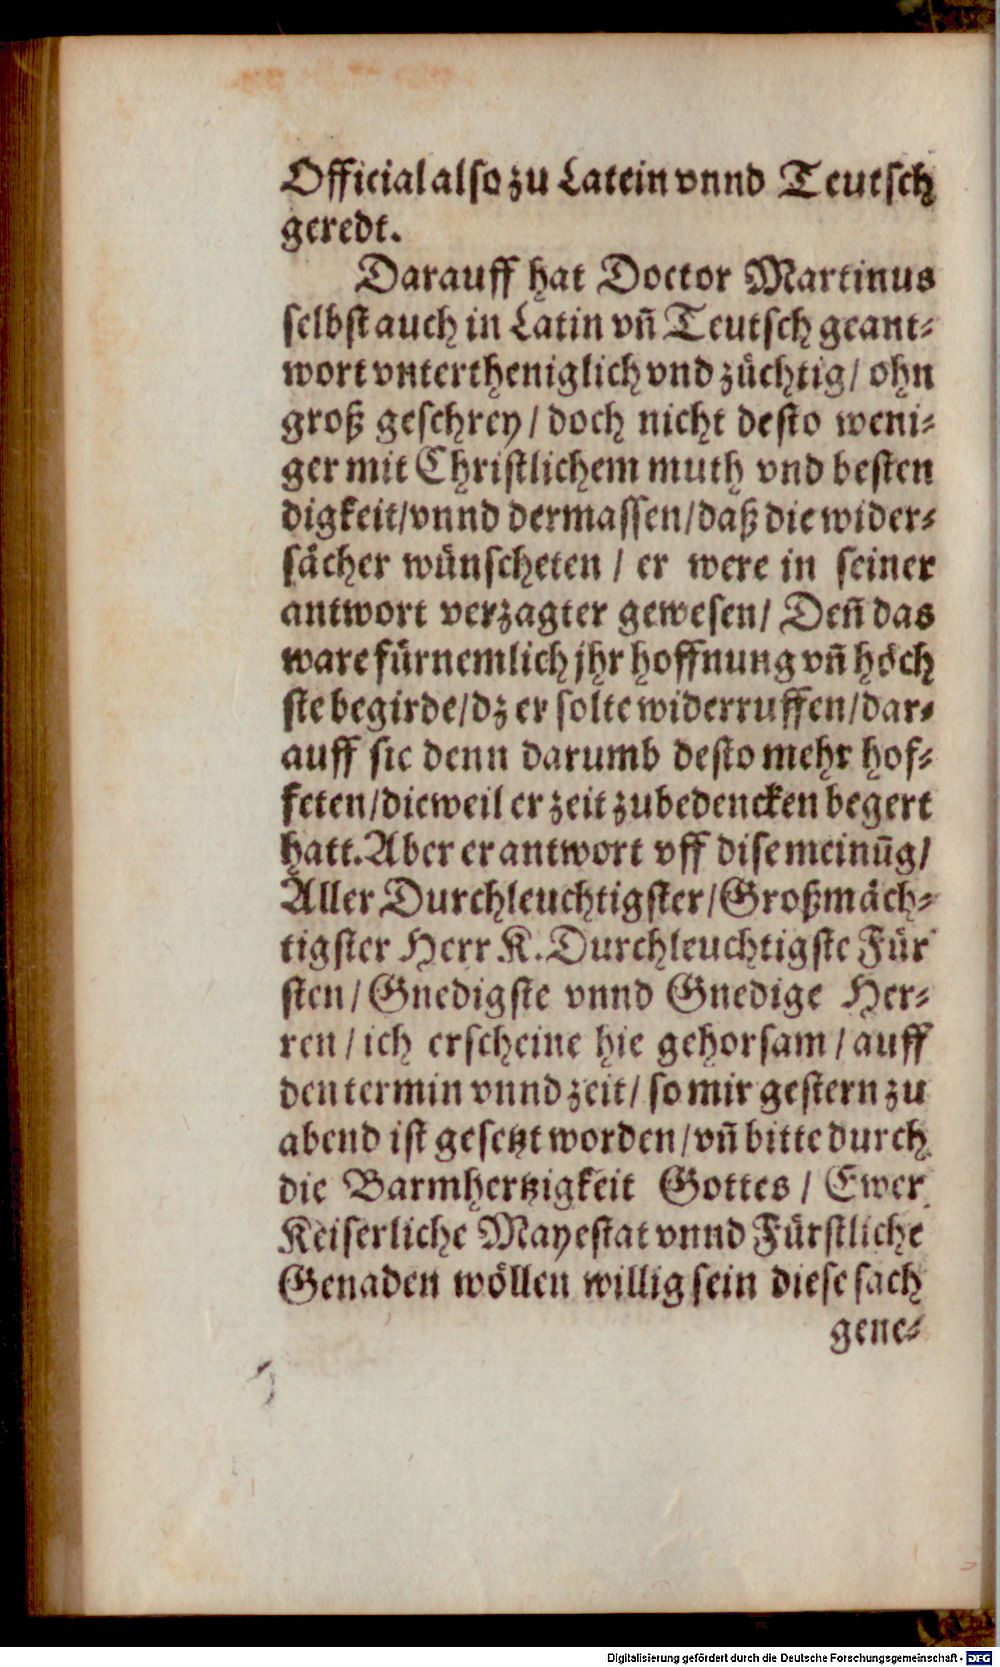 Official also zu Latein vnnd Teutsch
geredt.
Darauff hat Doctor Martinus
selbst auch in Latin vñ Teutsch geant-
wort vntertheniglich vnd züchtig / ohn
groß geschrey / doch nicht desto weni-
ger mit Christlichem muth vnd besten
digkeit / vnnd dermassen / daß die wider-
sächer wünscheten / er were in seiner
antwort verzagter gewesen / Deñ das
ware fürnemlich jhr hoffnung vñ höch
ste begirde / dz er solte widerruffen / dar-
auff sie denn darumb desto mehr hof-
feten / dieweil er zeit zubedencken begert
hatt. Aber er antwort vff dise meinũg /
Aller Durchleuchtigster / Großmäch-
tigster Herr K. Durchleuchtigste Für
sten / Gnedigste vnnd Gnedige Her-
ren / ich erscheine hie gehorsam / auff
den termin vnnd zeit / so mir gestern zu
abend ist gesetzt worden / vñ bitte durch
die Barmhertzigkeit Gottes / Ewer
Keiserliche Mayestat vnnd Fürstliche
Genaden wöllen willig sein diese sach
gene-
Digitalisierung gefördert durch die Deutsche Forschungsgemeinschaft - DFG